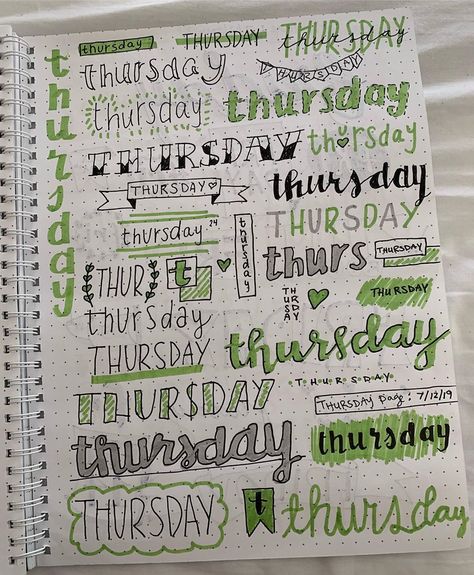 thursday
thursday
THURSDAY
THURSDAY
thursday
thursday
THURSDAY
thursday
thursday
thursday
THURSDAY
thursday
THURSDAY
thursday
thursday 24
thursday
THURSDAY
thurs
THURSDAY
THUR
t
THURSDAY
THURSDAY
thursday
thursday
THURSDAY
THURSDAY
THURSDAY
THURSDAY page: 7/12/19
thursday
thursday
THURSDAY
t
thursday